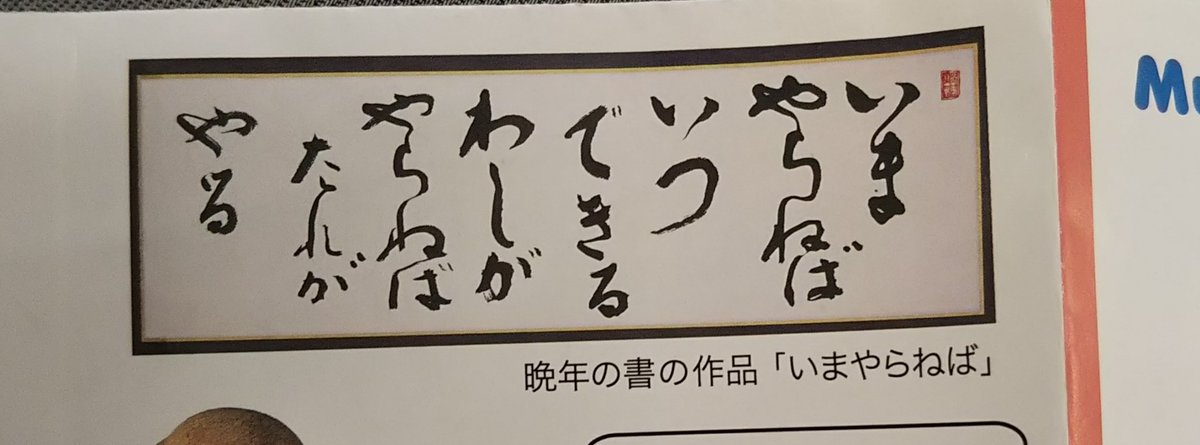 いま
やらねば
いつ
できる
わしが
やらねば
たれが
やる
晩年の書の作品「いまやらねば」